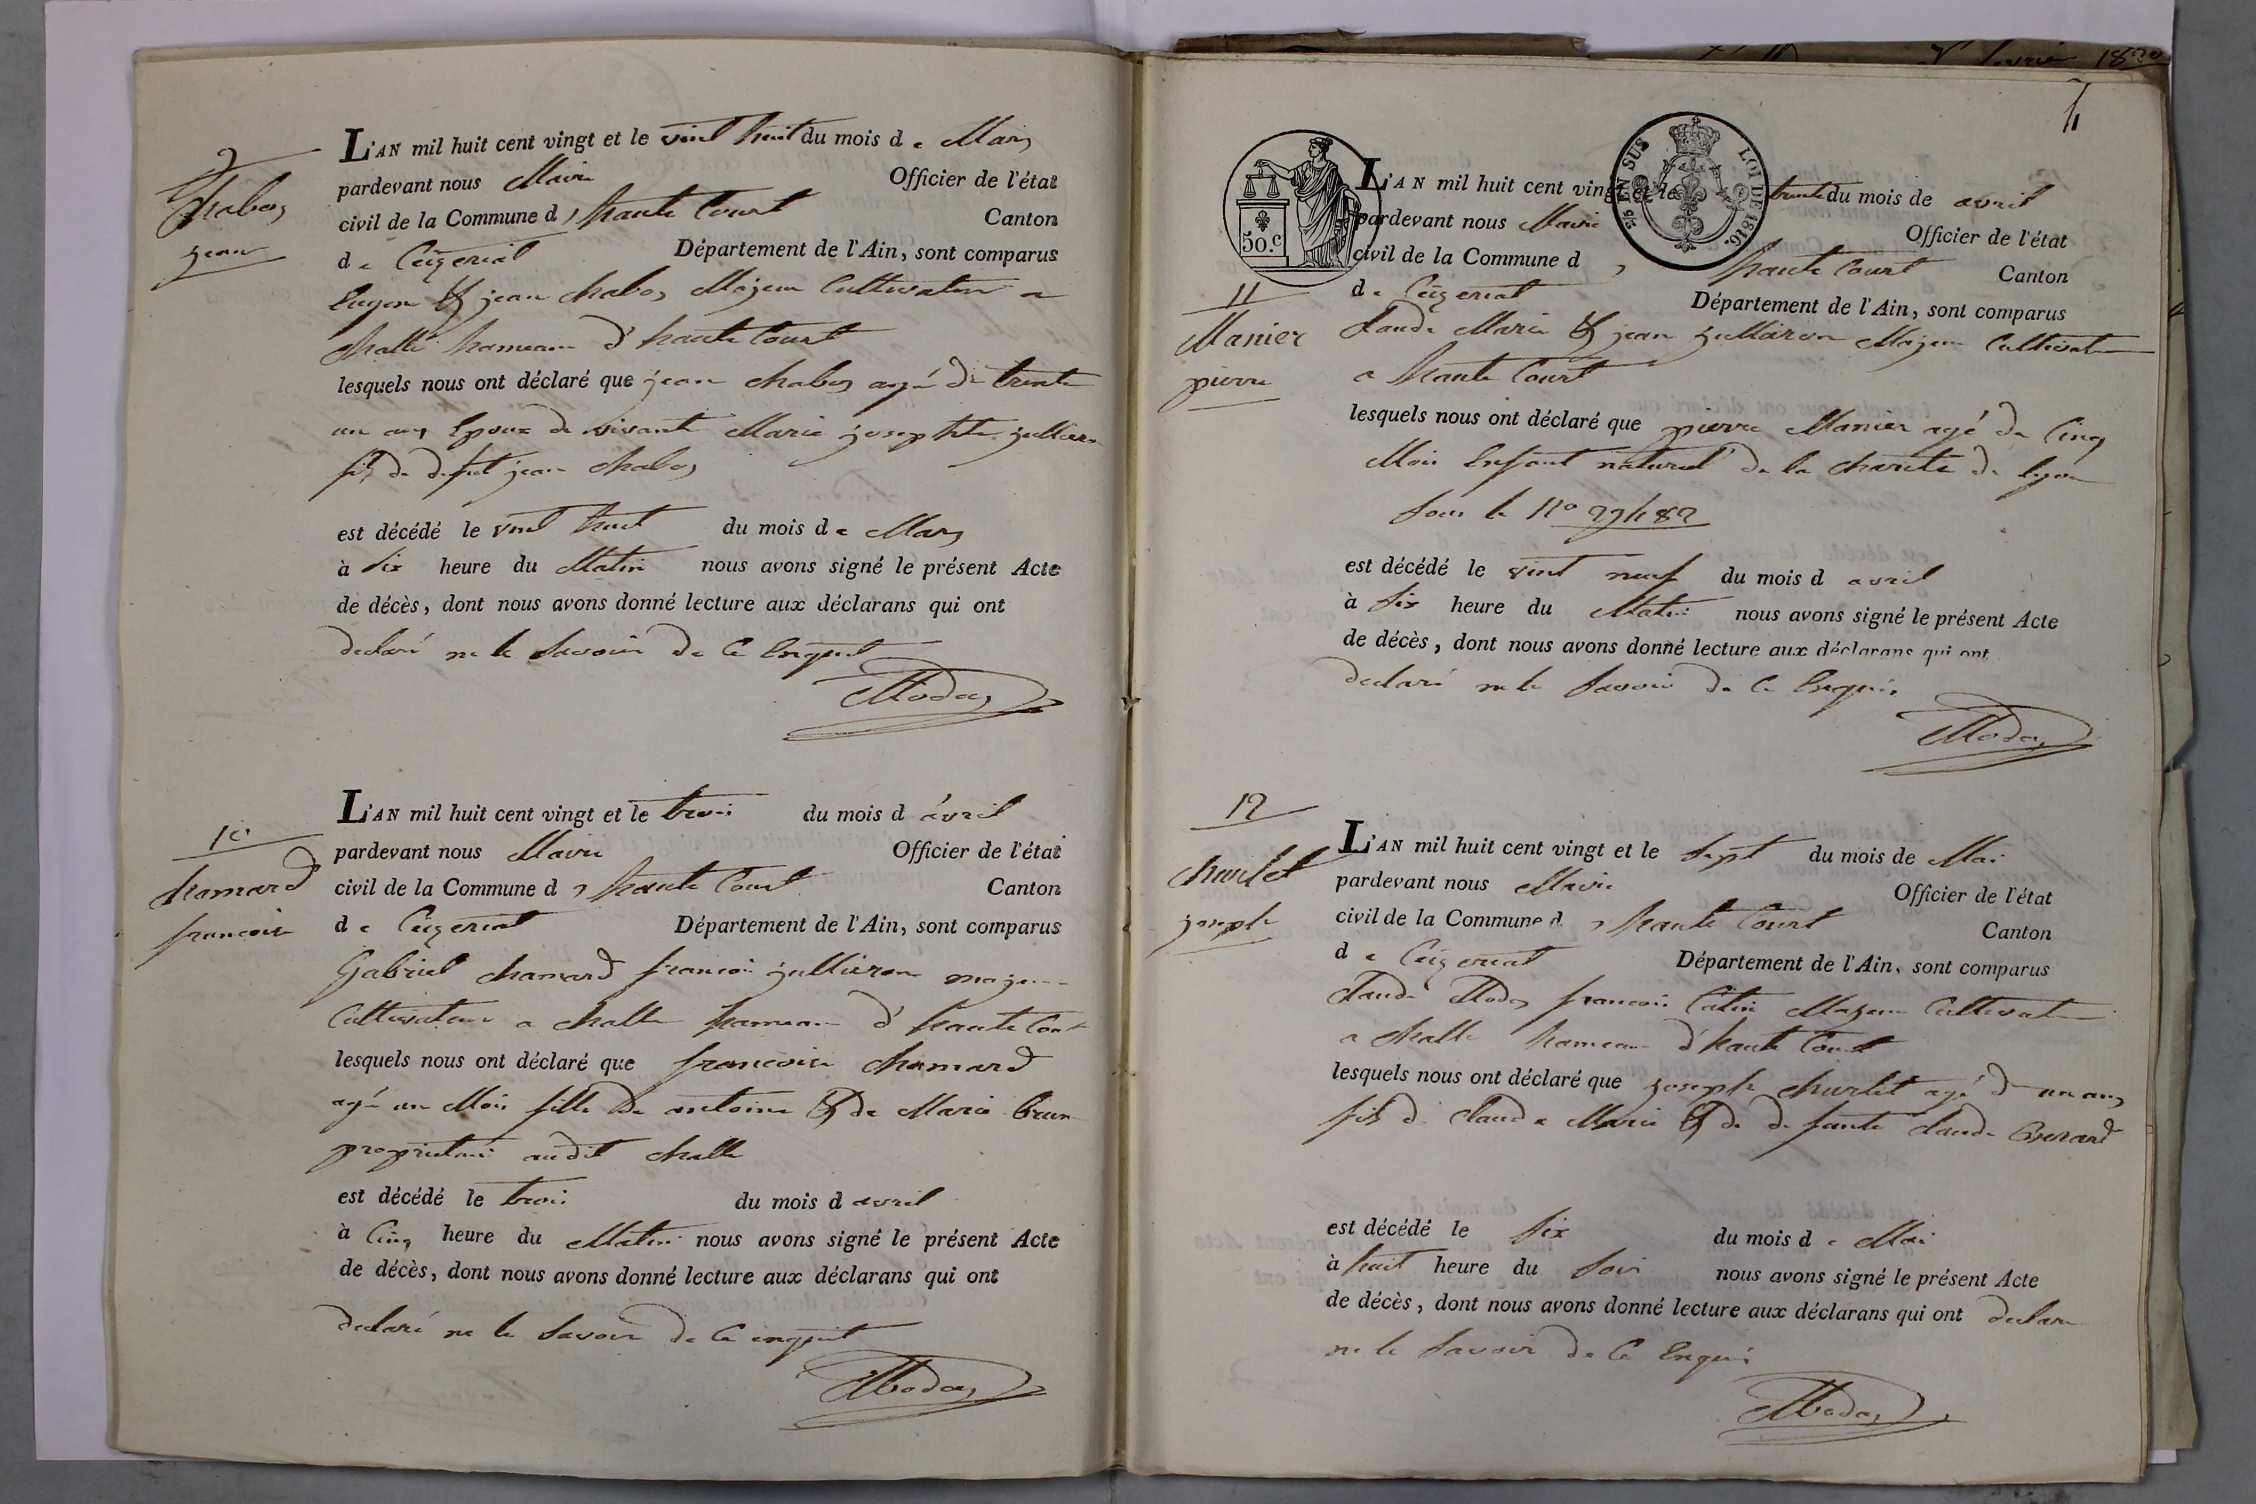 9
Chabos
jean
L'AN mil huit cent vingt et le vint huit du mois de Mars
pardevant nous Maire Officier de l'état
civil de la Commune d, haute Court Canton
de Ceÿzeriat Département de l'Ain, sont comparus
& jean chabos Majeur Cultivateur a
challe hameau d'haute Court
lesquels nous ont déclaré que jean chabos agé de trente
un ans Epoux de vivante Marie josephte jullieron
fils de defunt jean chabos
est décédé le vint huit du mois de Mars
à six heure du Matin nous avons signé le présent Acte
de décès, dont nous avons donné lecture aux déclarans qui ont
declaré ne le savoir de ce Enquit
Rodas
10
chamard
francoise
L'AN mil huit cent vingt et le trois du mois d avril
pardevant nous Maire Officier de l'état
civil de la Commune d, haute Court Canton
de Ceÿzeriat Département de l'Ain, sont comparus
Gabriel chamard francois jullieron majeur
Cultivateur a challe hameau d'haute Court
lesquels nous ont déclaré que francoise chamard
agé un Mois fille de antoine & de Marie brun
propriétaire audit challe
est décédé le trois du mois d avril
à Cinq heure du Matin nous avons signé le présent Acte
de décès, dont nous avons donné lecture aux déclarans qui ont
declaré ne le savoir de ce enquit
Rodas
1820
4
50.C
5/6 EN SUS LOI DE 1816.
11
Manier
pierre
L'AN mil huit cent vingt et le trente du mois de avril
pardevant nous Maire Officier de l'état
civil de la Commune d, haute Court Canton
de Ceÿzeriat Département de l'Ain, sont comparus
claude Marie & jean jullieron Majeur Cultivateur
a haute Court
lesquels nous ont déclaré que pierre Manier agé de Cinq
Mois Enfant naturel de la charité de lyon
sous le No
est décédé le vint neuf du mois d avril
à six heure du Matin nous avons signé le présent Acte
de décès, dont nous avons donné lecture aux déclarans qui ont
declaré ne le savoir de ce Enquis
Rodas
12
churlet
joseph
L'AN mil huit cent vingt et le sept du mois de Mai
pardevant nous Maire Officier de l'état
civil de la Commune d, haute Court Canton
de Ceÿzeriat Département de l'Ain, sont comparus
claude Rodas francois Catin Majeur Cultivateur
a challe hameau d'haute Court
lesquels nous ont déclaré que joseph churlet agé d un ans
fils de claude Marie & de defunte claude
est décédé le six du mois de Mai
à huit heure du soir nous avons signé le présent Acte
de décès, dont nous avons donné lecture aux déclarans qui ont declare
ne le savoir de ce Enquis
Rodas